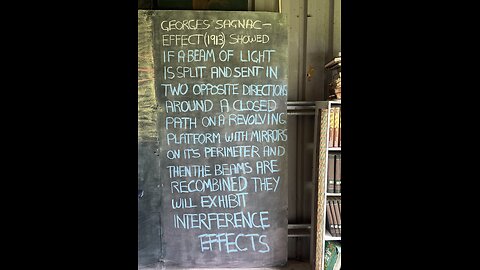 GEORGES SAGNAC-
EFFECT (1913) SHOWED
IF A BEAM OF LIGHT
IS SPLIT AND SENT IN
TWO OPPOSITE DIRECTIONS
AROUND A CLOSED
PATH ON A REVOLVING
PLATFORM WITH MIRRORS
ON IT'S PERIMETER AND
THEN THE BEAMS ARE
RECOMBINED THEY
WILL EXHIBIT
INTERFERENCE
EFFECTS